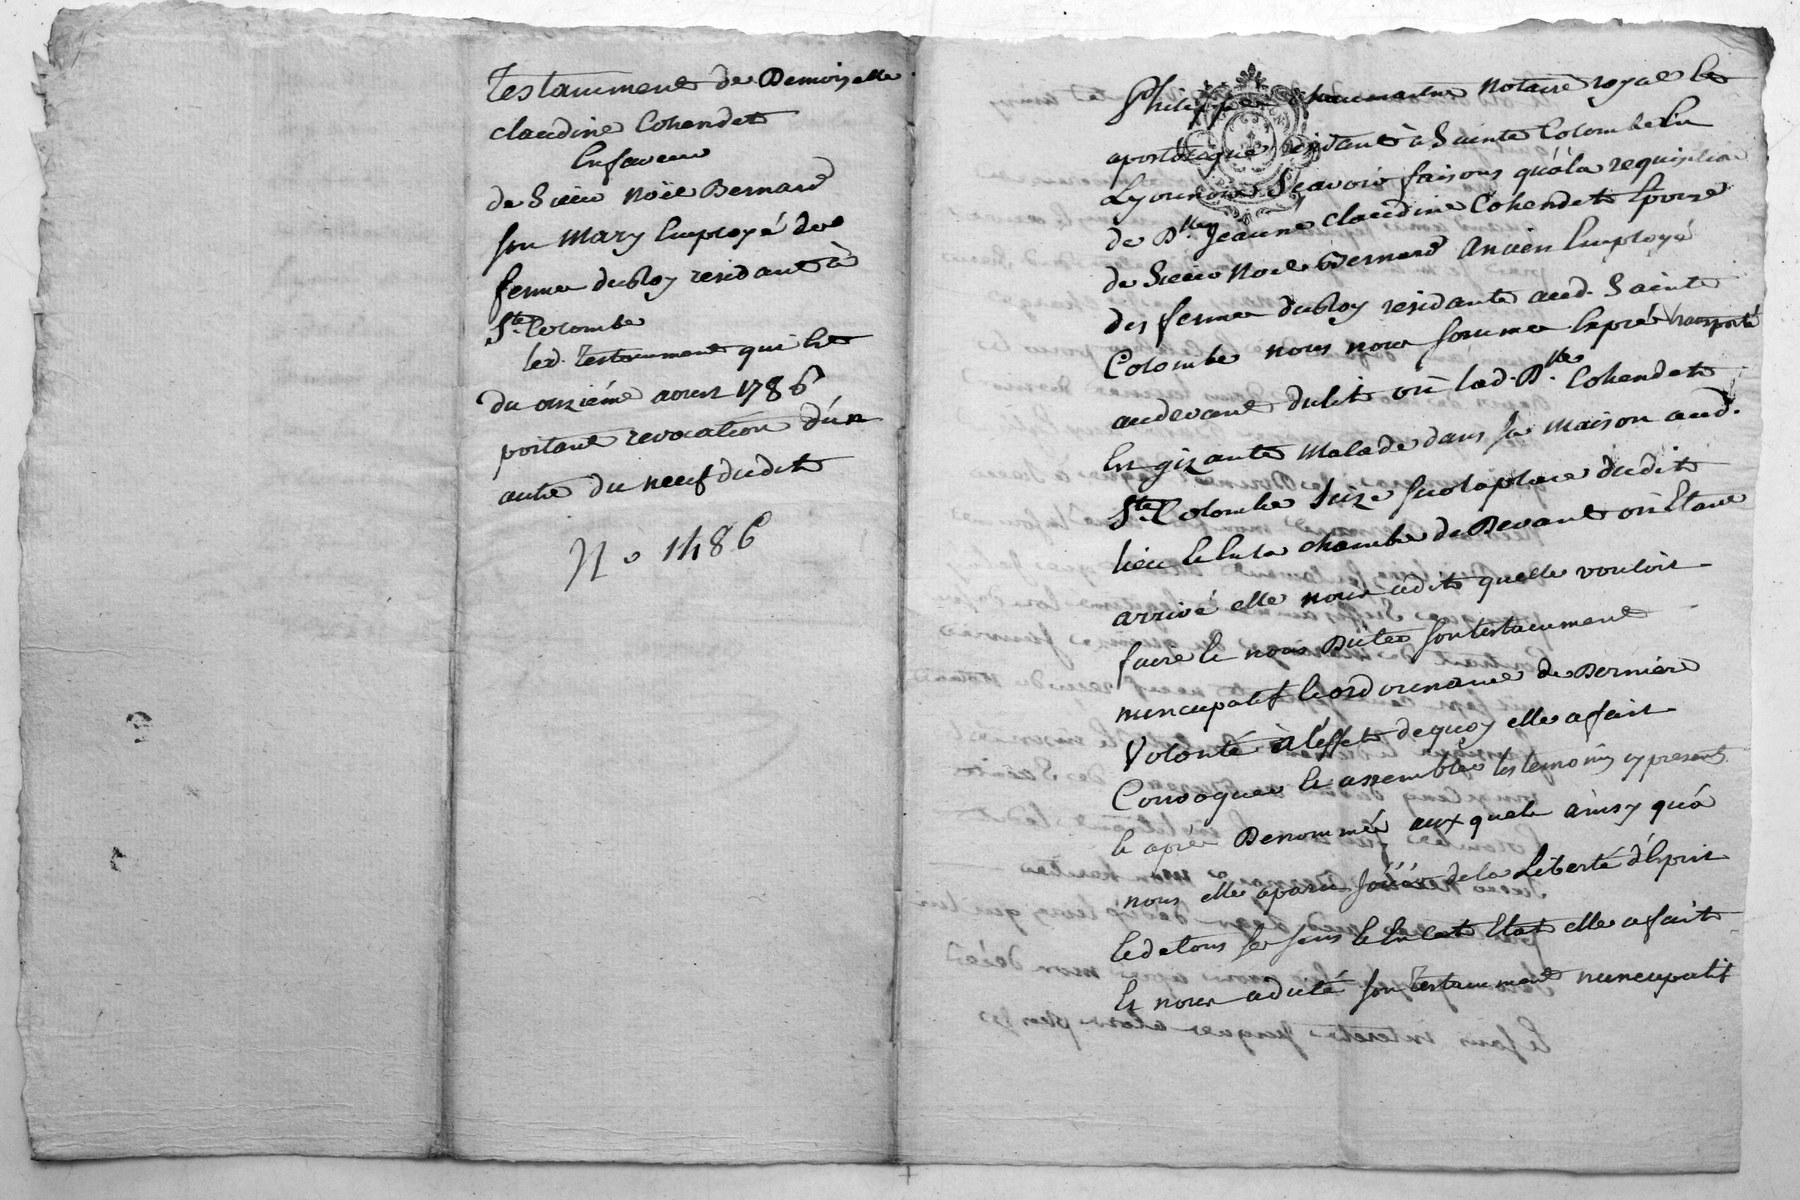 Testamment de Demoizelle
claudine Cohendet
En faveur
de Sieur Noël Bernard
son Mary Employé des
fermes du Roy residant à
Ste. Colombe
led. Testamment qui Est
du onziéme aoust 1786
portant revocation d'un
autre du neuf dudit
No 1486
Philippe Notaire royal Et
apostolique residant à Sainte Colombe Lès
Lyonnois Sçavoir faisons qu'à la requisition
de Dlle Jeanne claudine Cohendet Epouse
de Sieur Noel Bernard Ancien Employé
des fermes du Roy residante aud. Sainte
Colombe nous nous sommes Exprés transporté
au devant du lit où lad. Dlle. Cohendet
Est gizante Malade dans sa Maison aud.
Ste. Colombe Size sur la place dudit
lieu Et En la chambre de Devant où Etant
arrivé elle nous a dit quelle vouloit
faire Et nous Dicter son testamment
nuncupatif Et ordonnance de Derniere
Volonté à l'effet de quoy elle a fait
Convoquer Et assembler les temoins cy presents
Et aprés Denommés aux quels ainsy qu'à
nous elle a paru joüir de la Liberté d'Esprit
Et de tous ses sens Et En Cet Etat elle a fait
Et nous a dicté son Testamment nuncupatif